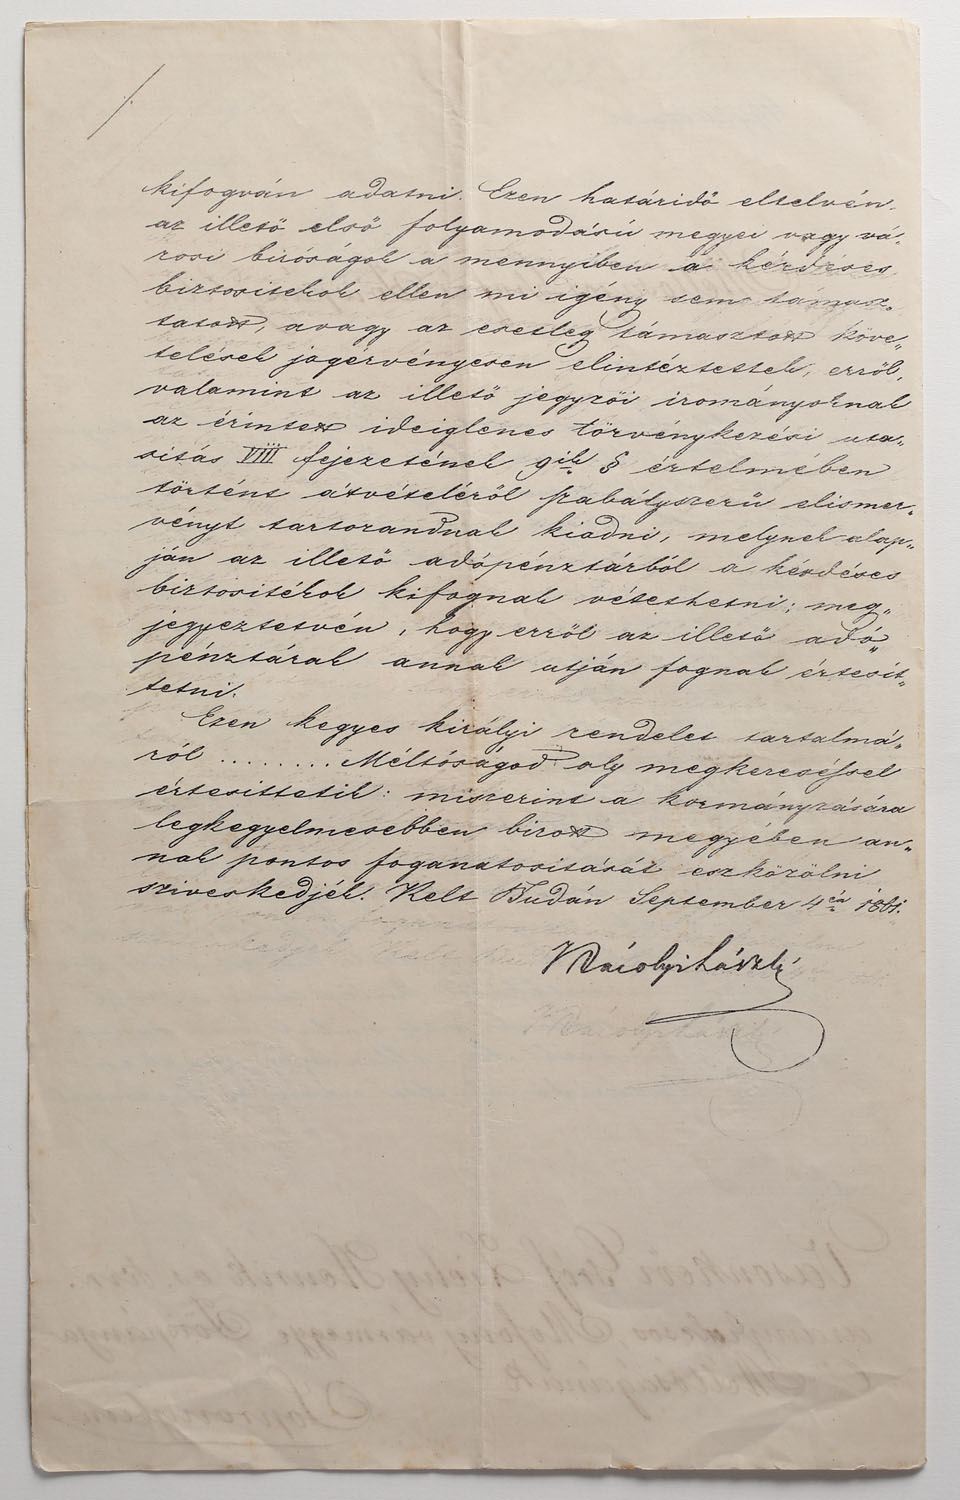 kifogván adatni. Ezen határidő eltelvén
az illető első folyamodásu megyei vagy vá„
rosi biróságok a mennyiben a kérdéses
biztositékok ellen mi igény sem támasz„
tatott, avagy az esetleg támasztott köve„
telések jogérvényesen elintéztettek, erről,
valamint az illető jegyzői irományoknak
az érintett ideiglenes törvénykezési uta„
sitás VIII fejezetének 9ik § értelmében
történt átvételéről szabályszerű elismer„
vényt tartozandnak kiadni, melynek alap„
ján az illető adópénztárból a kérdéses
biztositékok kifognak vétethetni; meg„
jegyeztetvén, hogy erről az illető adó„
pénztárak annak utján fognak értesit„
tetni.
Ezen kegyes királyi rendelet tartalmá„
ról ........ Méltóságod oly megkereséssel
értesittetik: miszerint a kormányzására
legkegyelmesebben bizott megyében an„
nak pontos foganatositását eszközölni
sziveskedjék. Kelt Budán September 4én 1861.
Károlyi László